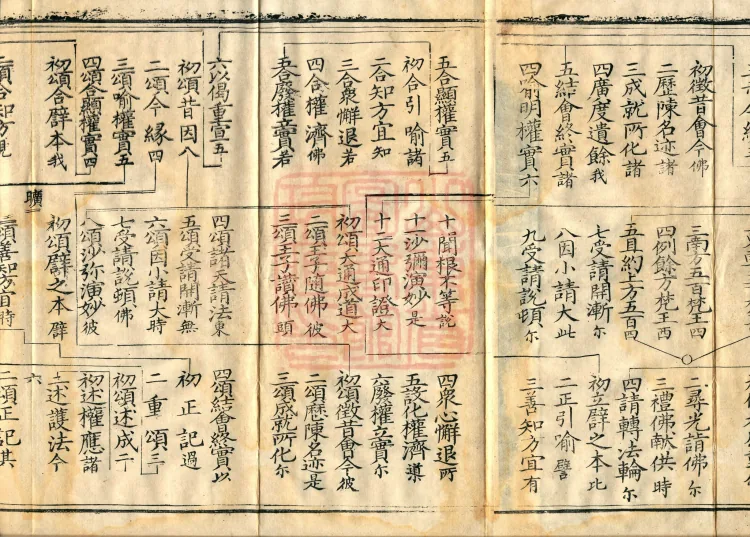 初徵昔會今佛
二歷陳名迹諸
三成就所化諸
四廣度遺餘我
五結會終實諸
四喻明權實六
五合顯權實五
初合引喻諸
二合知方宜知
三合衆懈退若
四合權濟佛
五合廢權立實若
六以偈重宣五
初頌昔因八
二頌今緣四
三頌喻權實五
四頌合顯權實四
初頌合辟本我
二頌合知方現
三南方五百梵王四
四例餘方梵王西
五直約上方五百四
七受請開漸尔
八因小請大此
九受請說頓尔
十聞根不等說
十一沙彌演妙是
十二大通印證大
初頌大通成道大
二頌王子隨佛彼
三頌王子讚佛頭
四頌諸天請法東
五頌受請開漸無
六頌因小請大時
七受請說頓佛
八頌沙弥演妙彼
初頌辟之本辟
曠
二頌善知方宜時
二尋光請佛尔
三禮佛献供時
四請轉法輪尔
初立辟之本比
二正引喻譬
三善知方宜有
四衆心懈退所
五設化權濟導
六廢權立實尔
初頌徵昔會今彼
二頌歷陳名迹是
三頌成就所化尔
四頌結會終實以
初正記過
二重頌三
初頌述成二
初述權應諸
二述護法今
六
二頌正記其